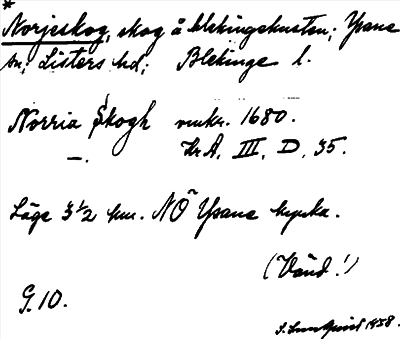 *
Norjeskog, skog å blekingekusten; Ysane
sn; Listers hd; Blekinge l.
Norria Skogh omkr. 1680.
—. KrA, III, D, 35.
Läge 3½ km. NO Ysane kyrka.
(Vänd!)
G. 10.
S. Lundquist 1938.